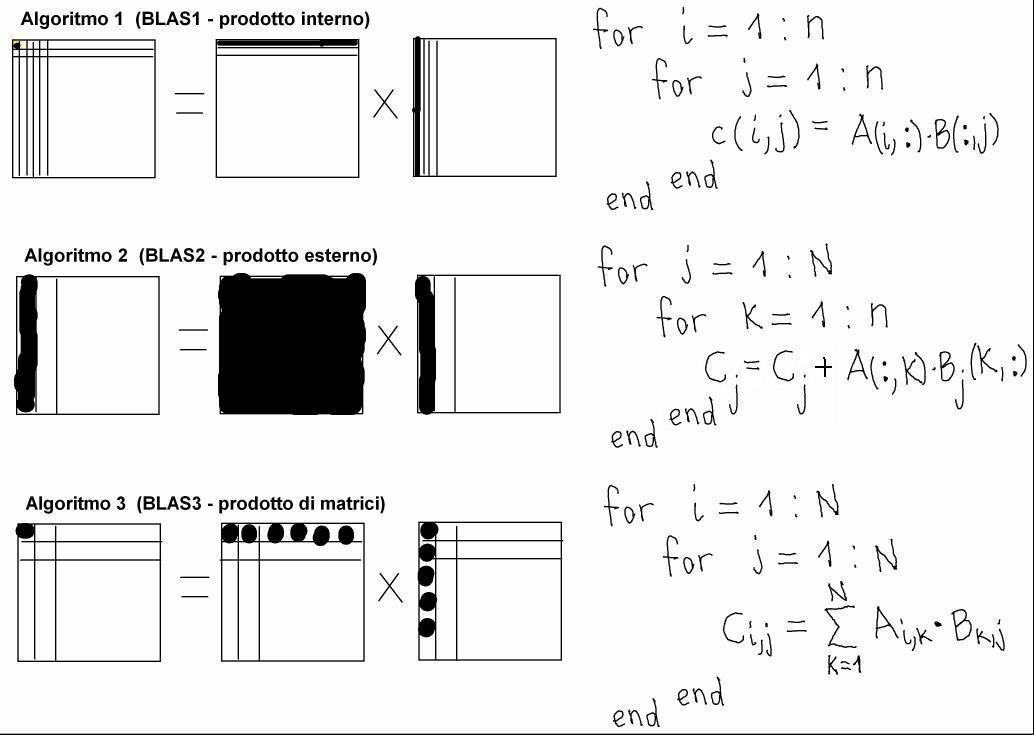 Algoritmo 1 (BLAS1 - prodotto interno)
for i = 1 : n
for j = 1 : n
c(i,j) = A(i,:)·B(:,j)
end
end
=
×
Algoritmo 2 (BLAS2 - prodotto esterno)
for j = 1 : N
for k = 1 : n
Cj = Cj + A(:,k)·Bj(k,:)
end
end
=
×
Algoritmo 3 (BLAS3 - prodotto di matrici)
for i = 1 : N
for j = 1 : N
Ci,j = ∑ k=1 N Ai,k · Bk,j
end
end
=
×